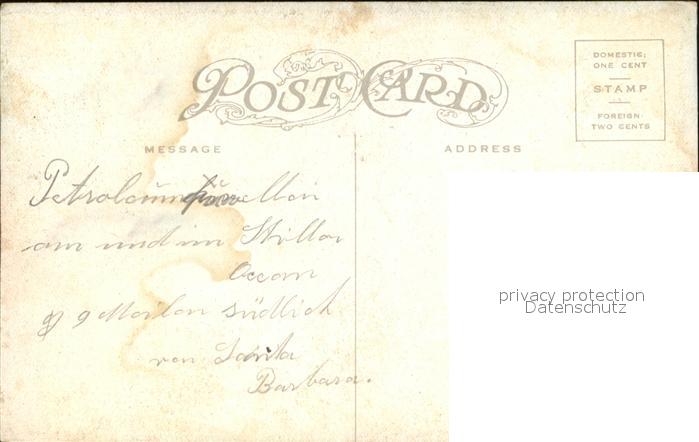 POST CARD
DOMESTIC:
ONE CENT
STAMP
FOREIGN
TWO CENTS
MESSAGE
ADDRESS
Petroleum
am und im Stillen
Ocean
9 Meilen südlich
von Santa
Barbara.
privacy protection
Datenschutz